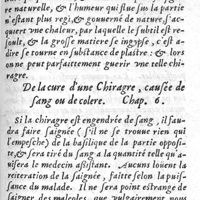 re naturelle, & l'humeur qui flue sus la partie
n'estant plus regi, & gouuerné de nature, s'ac
quiert vne chaleur, par laquelle le subtil est re-
soult, & la grosse matiere se ingypse, c'est à
dire se tourne en substance de plastre: & lors
on ne peut parfaittement guerir vne telle chi-
ragre.
De la cure d'une Chiragre, causée de
sang ou de colere. Chap. 6.
Si la chiragre est engendrée de sang, il fau-
dra faire saignée (s'il ne se trouue rien qui
l'empesche) de la basilique de la partie opposi-
te, & sera tiré du sang a la quantité telle qu'a-
uisera le medecin assistant. Aucuns loüent la
reiteration de la saignée, faitte selon la puis-
sance du malade. Il ne sera point estrange de
saigner des maleoles, que vulgairement nous